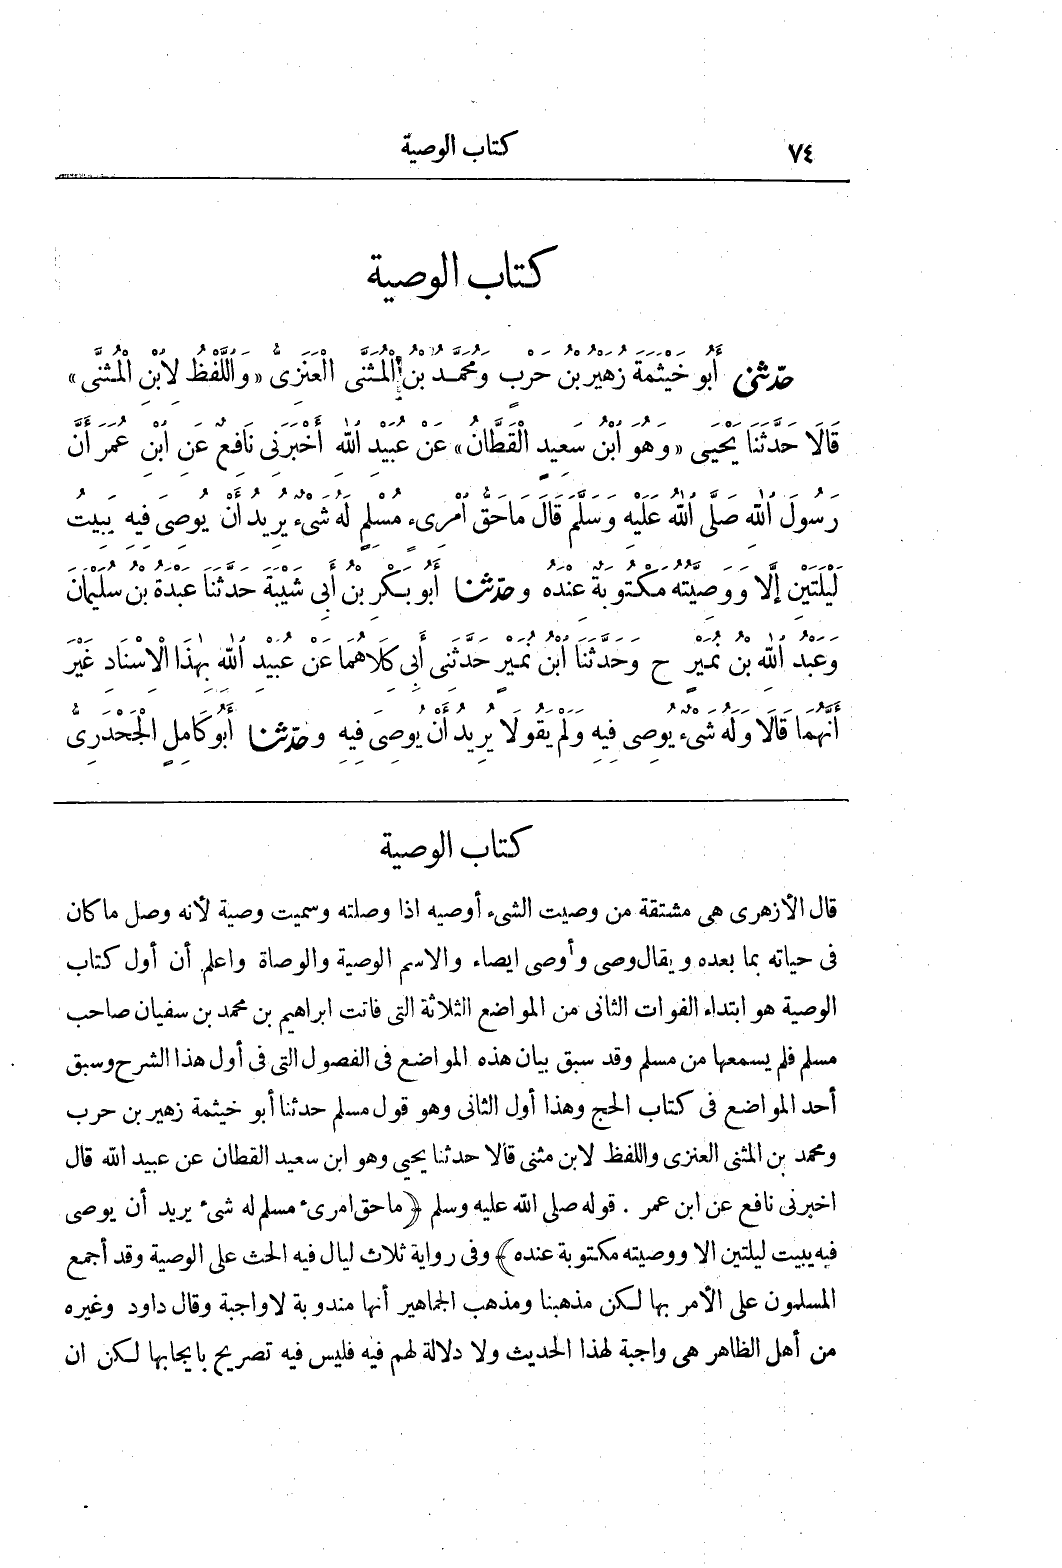 ٧٤ كتاب الوصية
كتاب الوصية
حَدَّثَنِى أَبُو خَيْثَمَةَ زُهَيْرُ بْنُ حَرْبٍ وَمُحَمَّدُ بْنُ الْمُثَنَّى الْعَنَزِىُّ «وَاللَّفْظُ لِابْنِ الْمُثَنَّى»
قَالَا حَدَّثَنَا يَحْيَى «وَهُوَ ابْنُ سَعِيدٍ الْقَطَّانُ» عَنْ عُبَيْدِ اللهِ أَخْبَرَنِى نَافِعٌ عَنِ ابْنِ عُمَرَ أَنَّ
رَسُولَ اللهِ صَلَّى اللهُ عَلَيْهِ وَسَلَّمَ قَالَ مَا حَقُّ امْرِىءٍ مُسْلِمٍ لَهُ شَىْءٌ يُرِيدُ أَنْ يُوصِىَ فِيهِ يَبِيتُ
لَيْلَتَيْنِ إِلَّا وَوَصِيَّتُهُ مَكْتُوبَةٌ عِنْدَهُ وَحَدَّثَنَا أَبُو بَكْرِ بْنُ أَبِى شَيْبَةَ حَدَّثَنَا عَبْدَةُ بْنُ سُلَيْمَانَ
وَعَبْدُ اللهِ بْنُ نُمَيْرٍ ح وَحَدَّثَنَا ابْنُ نُمَيْرٍ حَدَّثَنِى أَبِى كِلَاهُمَا عَنْ عُبَيْدِ اللهِ بِهَذَا الْإِسْنَادِ غَيْرَ
أَنَّهُمَا قَالَا وَلَهُ شَىْءٌ يُوصِى فِيهِ وَلَمْ يَقُولَا يُرِيدُ أَنْ يُوصِىَ فِيهِ وَحَدَّثَنَا أَبُو كَامِلٍ الْجَحْدَرِىُّ
كتاب الوصية
قال الأزهرى هى مشتقة من وصيت الشىء أوصيه اذا وصلته وسميت وصية لأنه وصل ماكان
فى حياته بما بعده ويقال وصى وأوصى ايصاء والاسم الوصية والوصاة واعلم أن أول كتاب
الوصية هو ابتداء الفوات الثانى من المواضع الثلاثة التى فاتت ابراهيم بن محمد بن سفيان صاحب
مسلم فلم يسمعها من مسلم وقد سبق بيان هذه المواضع فى الفصول التى فى أول هذا الشرح وسبق
أحد المواضع فى كتاب الحج وهذا أول الثانى وهو قول مسلم حدثنا أبو خيثمة زهير بن حرب
ومحمد بن المثنى العنزى واللفظ لابن مثنى قالا حدثنا يحيى وهو ابن سعيد القطان عن عبيد الله قال
اخبرنى نافع عن ابن عمر . قوله صلى الله عليه وسلم ﴿ماحق امرىء مسلم له شىء يريد أن يوصى
فيه يبيت ليلتين الا ووصيته مكتوبة عنده﴾ وفى رواية ثلاث ليال فيه الحث على الوصية وقد أجمع
المسلمون على الأمر بها لكن مذهبنا ومذهب الجماهير أنها مندوبة لاواجبة وقال داود وغيره
من أهل الظاهر هى واجبة لهذا الحديث ولا دلالة لهم فيه فليس فيه تصريح بايجابها لكن ان